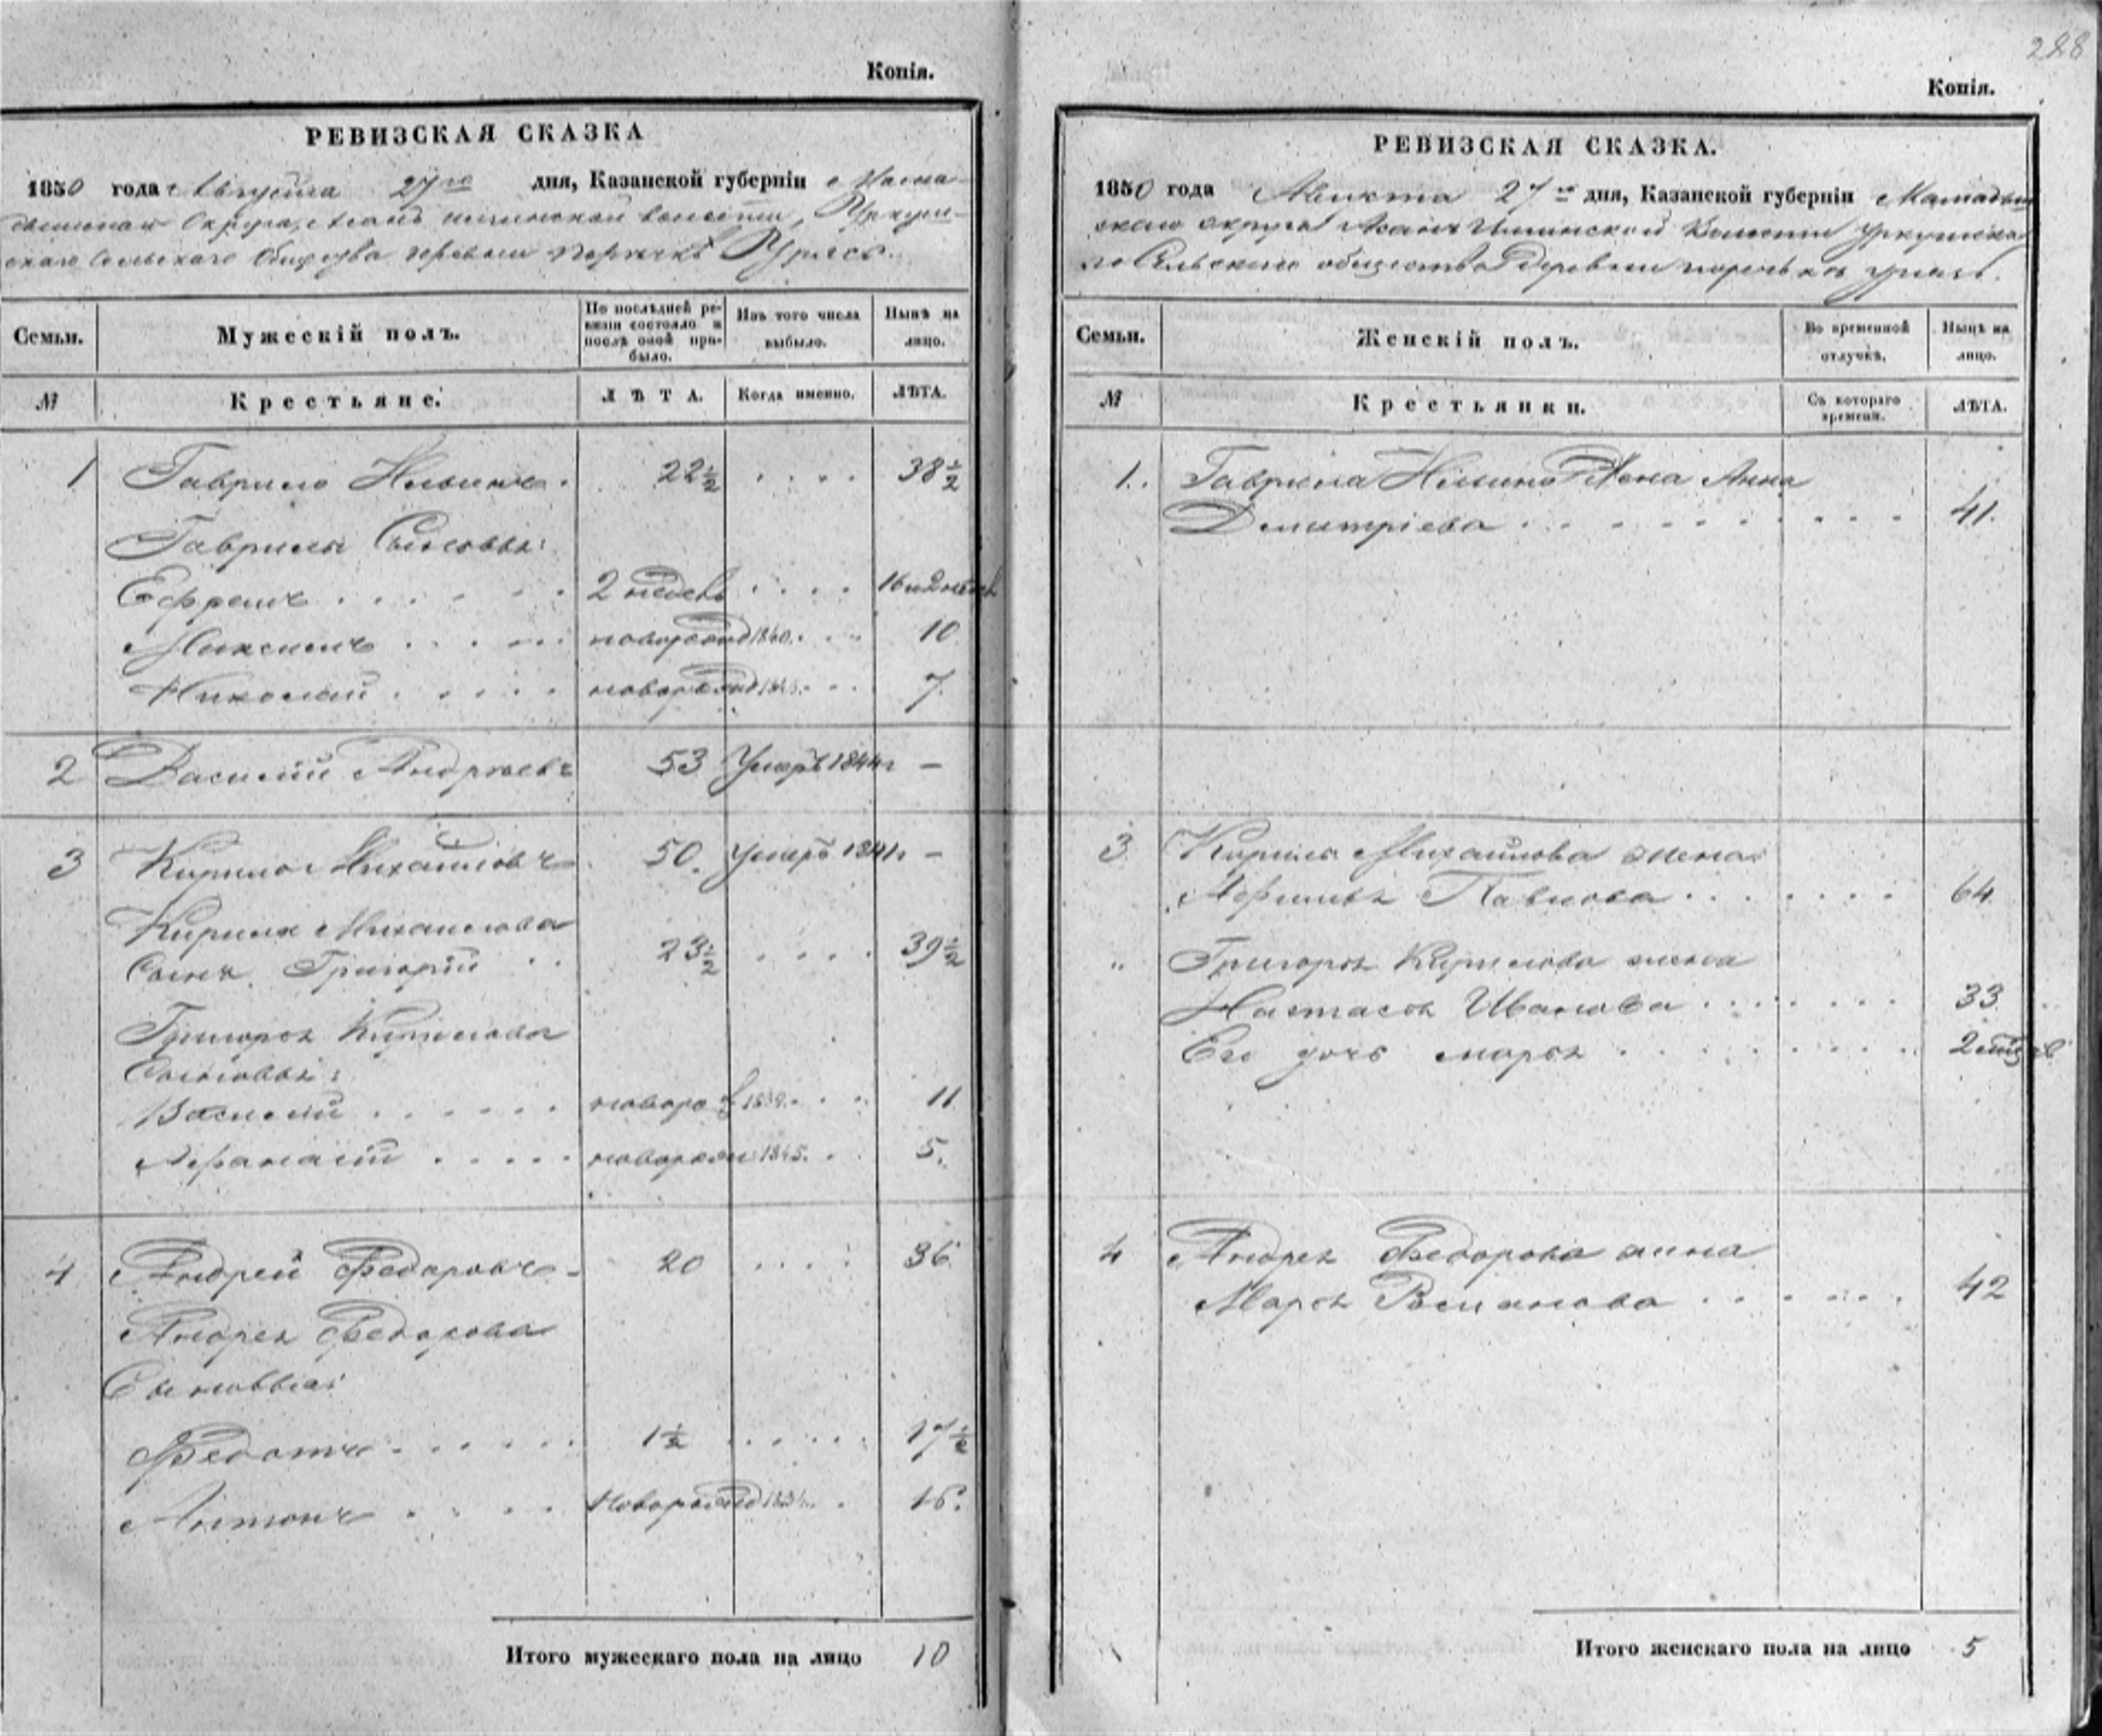 Копія.
РЕВИЗСКАЯ СКАЗКА
1850 года Августа 27го дня, Казанской губерніи Мама-
дышскаго Округа, волости,
скаго Сельскаго Общества деревни Урясь.
Семьи.
Мужескій полъ.
По послѣдней ре-
визіи состояло и
послѣ оной при-
было.
Изъ того числа
выбыло.
Нынѣ на
лицо.
№
Крестьяне.
ЛѢТА.
Когда именно.
ЛѢТА.
1 Гаврило Ильинъ. 22½ . . . . 38½
Гаврилы Сыновья:
Ефремъ . . . . . . 2 недель . . . . 16 и 2 недель
Максимъ . . . . . новорожд 1840. . . . 10
Николай . . . . . новорожд 1843. . . . 7.
2 Василій Андреевъ 53 Умеръ 1844г —
3 Кирило Михайловъ 50. Умеръ 1841г. —
Кирила Михайлова
Сынъ Григорій . . 23½ . . . . 39½
Григорья Кирилова
Сыновья:
Василій . . . . . . новорож 1839. . . . 11
Афанасій . . . . . новорожд 1845. . . 5.
4 Андрей Федоровъ - 20 . . . . 36
Андрея Федорова
Сыновья:
Федотъ . . . . . . 1½ . . . . . 17½
Антонъ . . . . Новорожд 1834. . . 16.
Итого мужескаго пола на лицо 10
288
Копія.
РЕВИЗСКАЯ СКАЗКА.
1850 года Августа 27го дня, Казанской губерніи Мамадыш
скаго округа Волости
го Сельскаго общества деревни
Семьи.
Женскій полъ.
Во временной
отлучкѣ.
Нынѣ на
лицо.
№
Крестьянки.
Съ котораго
времени.
ЛѢТА.
1. Гаврила Ильина Жена Анна
Дмитріева . . . . . . . . . . 41.
3 Кирила Михайлова жена
Афимья Павлова . . . . . . . 64
" Григорья Кирилова жена
Настасья Иванова . . . . . . . 33
Его дочь марья . . . . . . . . . 2
4 Андрея Федорова жена
Марья Романова . . . . . . 42
Итого женскаго пола на лицо 5